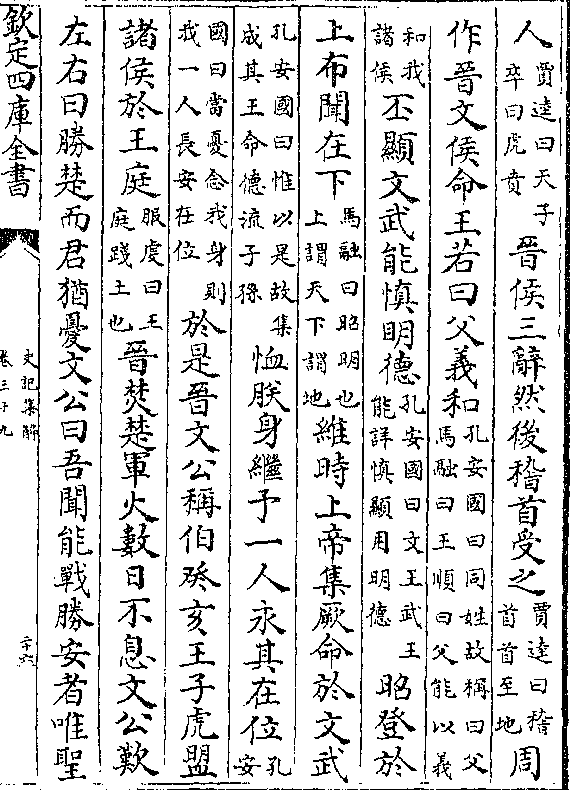 人賈逵曰天子卒曰虎賁晉侯三辭然後稽首受之賈逵曰稽首首至地周
作晉文侯命王若曰父義和孔安國曰同姓故稱曰父馬融曰王順曰父能以義
和我諸侯丕顯文武能慎明德孔安國曰文王武王能詳慎顯用明德昭登於
上布聞在下馬融曰昭明也上謂天下謂地維時上帝集厥命於文武
孔安國曰惟以是故集成其王命德流子孫恤朕身繼予一人永其在位孔安
國曰當憂念我身則我一人長安在位於是晉文公稱伯癸亥王子虎盟
諸侯於王庭服虔曰王庭踐土也晉焚楚軍火數日不息文公歎
左右曰勝楚而君猶憂文公曰吾聞能戰勝安者唯聖
欽定四庫全書
史記集解
卷三十九
二十六